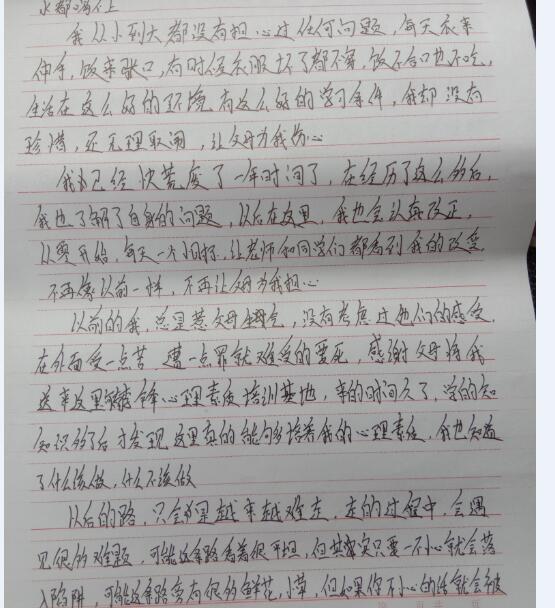 水都喝不上
我从小到大都没有担心过任何问题，每天衣来
伸手，饭来张口，有时候衣服坏了都不穿，饭不合口也不吃，
生活在这么好的环境有这么好的学习条件，我却没有
珍惜，还无理取闹，让父母为我伤心
我已经快荒废了一年时间了，在经历了这么多后，
我也了解了自身的问题，以后在这里，我也会认真改正，
从零开始，每天一个小目标，让老师和同学们都看到我的改变，
不再像以前一样，不再让父母为我担心
以前的我，总是惹父母生气，没有考虑过他们的感受，
在外面受一点苦，遭一点罪就难受的要死，感谢父母将我
送来这里 心理素质培训基地，来的时间久了，学的知
知识多了后才发现这里真的能够培养我的心理素质，我也知道
了什么该做，什么不该做
以后的路，只会越来越难走，走的过程中，会遇
见很多难题，可能这条路看着很平坦，但其实只要一不小心就会落
入陷阱，可能这条路旁有很多鲜花，小草，但如果你不小心的话就会被